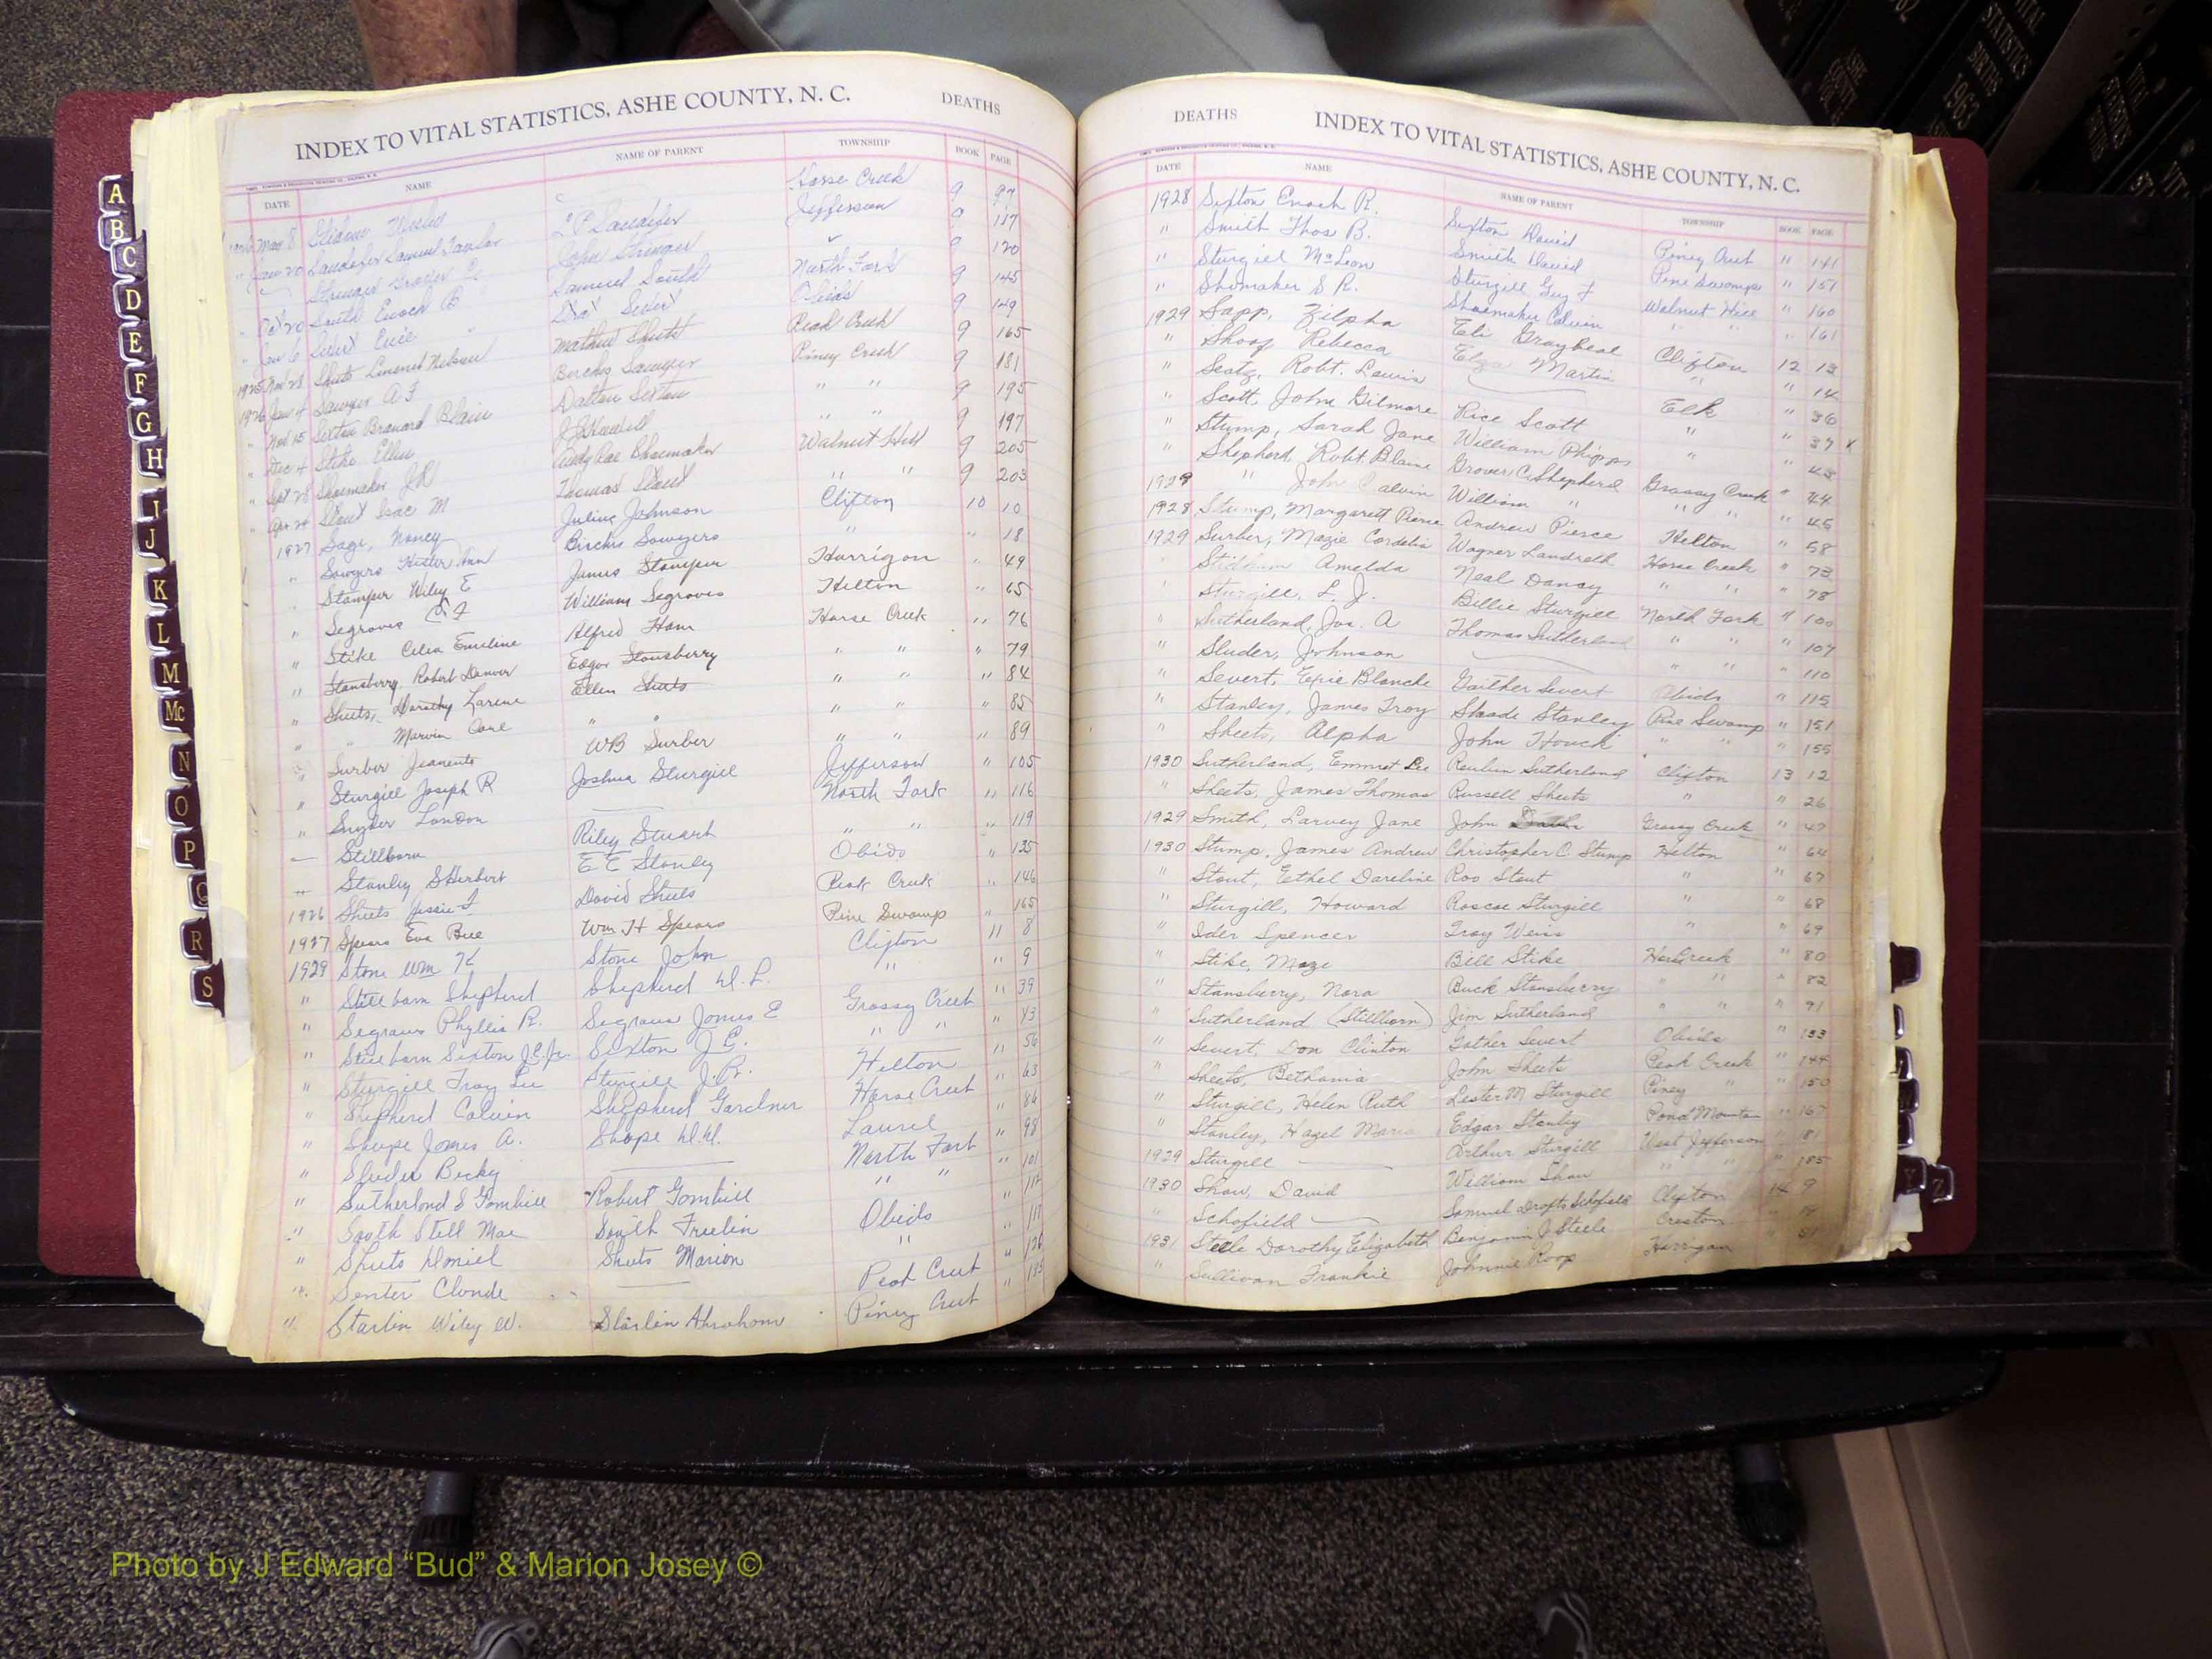 INDEX TO VITAL STATISTICS, ASHE COUNTY, N. C. DEATHS
DATE NAME NAME OF PARENT TOWNSHIP BOOK PAGE
Horse Creek 9 97
Jefferson 9 117
John Stringer 120
South Enoch B Samuel South North Fork 9 145
Obids 9 149
Peak Creek 9 165
Sawyer A F Piney Creek 9 181
Dalton Sexton " " 9 195
Stike Ellen " " 9 197
Shoemaker J R Walnut Hill 9 205
Stout Isac M Thomas Stout " " 9 203
1927 Sage, Nancy Julius Johnson Clifton 10 10
" 18
" Stamper Wiley E James Stamper Horrigon " 49
" Segroves William Segroves Helton " 65
" Stike Celia Emeline Alfred Ham Horse Creek " 76
" Stansberry Robert Denver Edgar Stansberry " " " 79
" Sheets, Dorothy Larene Ellen Sheets " " " 84
" " Marvin " " " " " 85
Surber WB Surber " " " 89
" Sturgill Joseph R Joshua Sturgill Jefferson " 105
" Snyder London North Fork " 116
Stillborn Riley Stuart " " " 119
Stanley S Herbert E E Stanley Obids " 135
1926 Sheets Jessie F David Sheets Peak Creek " 146
1927 Spears Eva Bee Wm H Spears Pine Swamp " 165
1929 Stone Wm H Stone John Clifton 11 8
" Stillborn Shepherd Shepherd W. L. " " 9
" Segraves Phyllis R. Segraves James E Grassy Creek " 39
" Stillborn Sexton J.C. Jr. Sexton J.C. " " " 43
" Sturgill Troy Lee Sturgill J.R. Helton " 56
" Shepherd Calvin Shepherd Gardner Horse Creek " 63
" Shupe James A. Shupe Laurel " 86
" Sluder Becky North Fork " 98
" Sutherland S Gambill Robert Gambill " " " 101
" South Stell Mae South Freelin Obids " 112
" Sheets Sheets Marion " " 117
" Senter Clonde Peak Creek " 126
" Starlin Wiley W. Starlin Abraham Piney Creek " 135
DEATHS INDEX TO VITAL STATISTICS, ASHE COUNTY, N. C.
DATE NAME NAME OF PARENT TOWNSHIP BOOK PAGE
1928 Sexton Enoch R. Sexton David Piney Creek " 141
" Smith Thos B. Smith David Pine Swamp " 151
" Sturgill McLeon Sturgill Guy F Walnut Hill " 160
" Shomaker S R. Shoemaker Calvin " " " 161
1929 Sapp, Zilpha Eli Graybeal Clifton 12 13
" Shoaf Rebecca Elza Martin " " 14
" Scatz, Robt. Lewis Elk " 36
" Scott, John Gilmore Rice Scott " " 37 x
" Stump, Sarah Jane William Phipps " " 43
" Shepherd Robt. Blaine Grover C. Shepherd Grassy Creek " 44
1929 " John Calvin William " " " " 45
1928 Stump, Margarett Pierce Andrew Pierce Helton " 58
1929 Surber, Mazie Cordelia Wagner Landreth Horse Creek " 73
" Stidham Amelda Neal Dancy " " " 78
" Sturgill, L. J. Billie Sturgill North Fork " 100
" Sutherland, Jos. A Thomas Sutherland " " " 107
" Sluder, Johnson " " " 110
" Severt, Effie Blanche Gaither Severt Obids " 115
" Stanley, James Troy Shade Stanley Pine Swamp " 151
" Sheets, Alpha John Houck " " " 155
1930 Sutherland, Emmet Lee Reubin Sutherland Clifton 13 12
" Sheets, James Thomas Russell Sheets " " 26
1929 Smith, Larvey Jane John Grassy Creek " 47
1930 Stump, James Andrew Christopher C. Stump Helton " 64
" Stout, Eethel Dareline Roo Stout " " 67
" Sturgill, Howard Roscoe Sturgill " " 68
" Ider Spencer Troy Weiss " " 69
" Stike, Maze Bill Stike " 80
" Stansberry, Nora Buck Stansberry " " " 82
" Sutherland (Stillborn) Jim Sutherland " " " 91
" Severt, Don Clinton Gather Severt Obids " 133
" Sheets, Bethania John Sheets Peak Creek " 144
" Sturgill, Helen Ruth Lester M Sturgill Piney " " 150
" Stanley, Hazel Marie Edgar Stanley Pond Mountain " 167
1929 Sturgill Arthur Sturgill West Jefferson " 181
1930 Shaw, David William Shaw " " " 185
" Schofield Samuel Drofts Schofield Clifton 14 9
1931 Steele Dorothy Elizabeth Benjamin J Steele Creston "
" Sullivan Frankie Johnnie Roop Horrigan " 51
A
B
C
D
E
F
G
H
I
J
K
L
M
Mc
N
O
P
Q
R
S
Z
VITAL STATISTICS BIRTHS 1963
Photo by J Edward "Bud" & Marion Josey ©